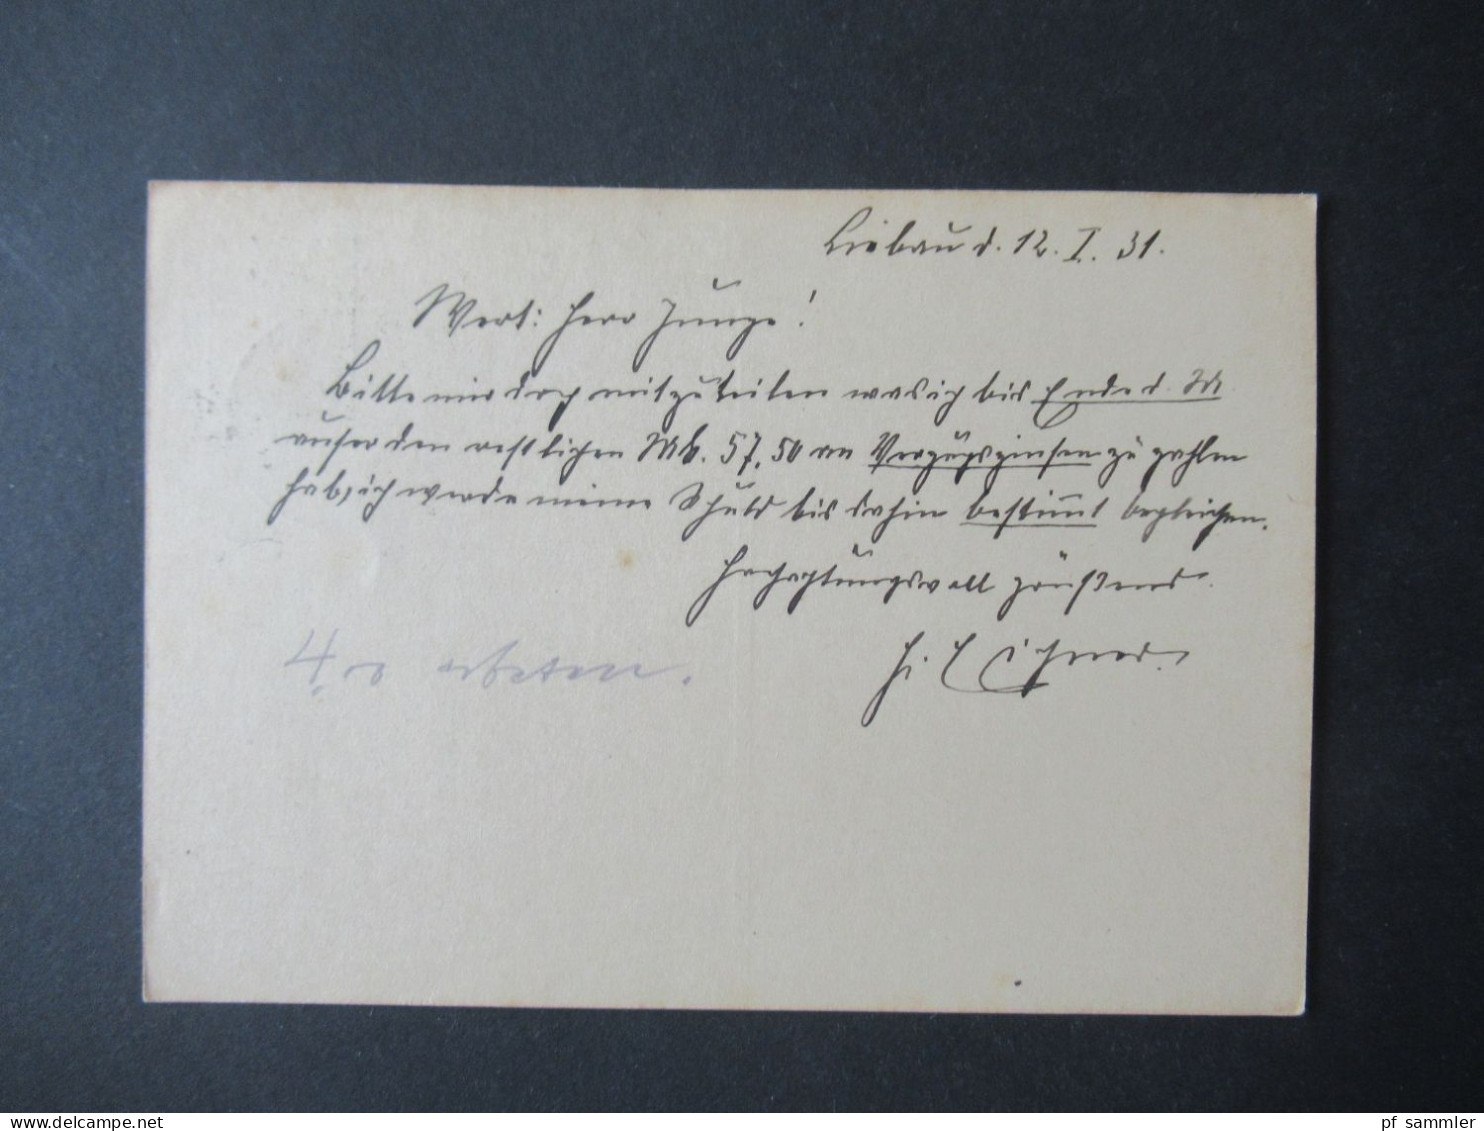 Liebau d. 12. I. 31.
Wert: Herr Junge!
Bitte mir doch mitzuteilen was ich bis Ende d. M.
außer den restlichen Mk. 57,50 an Verzugszinsen zu zahlen
hab, ich werde meine Schuld bis dahin bestimmt begleichen.
Hochachtungsvoll grüßend
H.
erbeten.
pf sammler